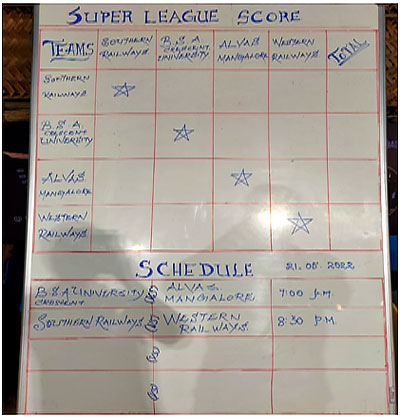 SUPER LEAGUE SCORE
TEAMS SOUTHERN RAILWAYS B.S.A CRESCENT UNIVERSITY ALVAS MANGALORE WESTERN RAILWAYS TOTAL
SOUTHERN RAILWAYS
B.S.A CRESCENT UNIVERSITY
ALVAS MANGALORE
WESTERN RAILWAYS
SCHEDULE 21.05.2022
B.S.A UNIVERSITY CRESCENT VS ALVAS MANGALORE 7:00 P.M
SOUTHERN RAILWAYS VS WESTERN RAILWAYS 8:30 P.M
VS
VS